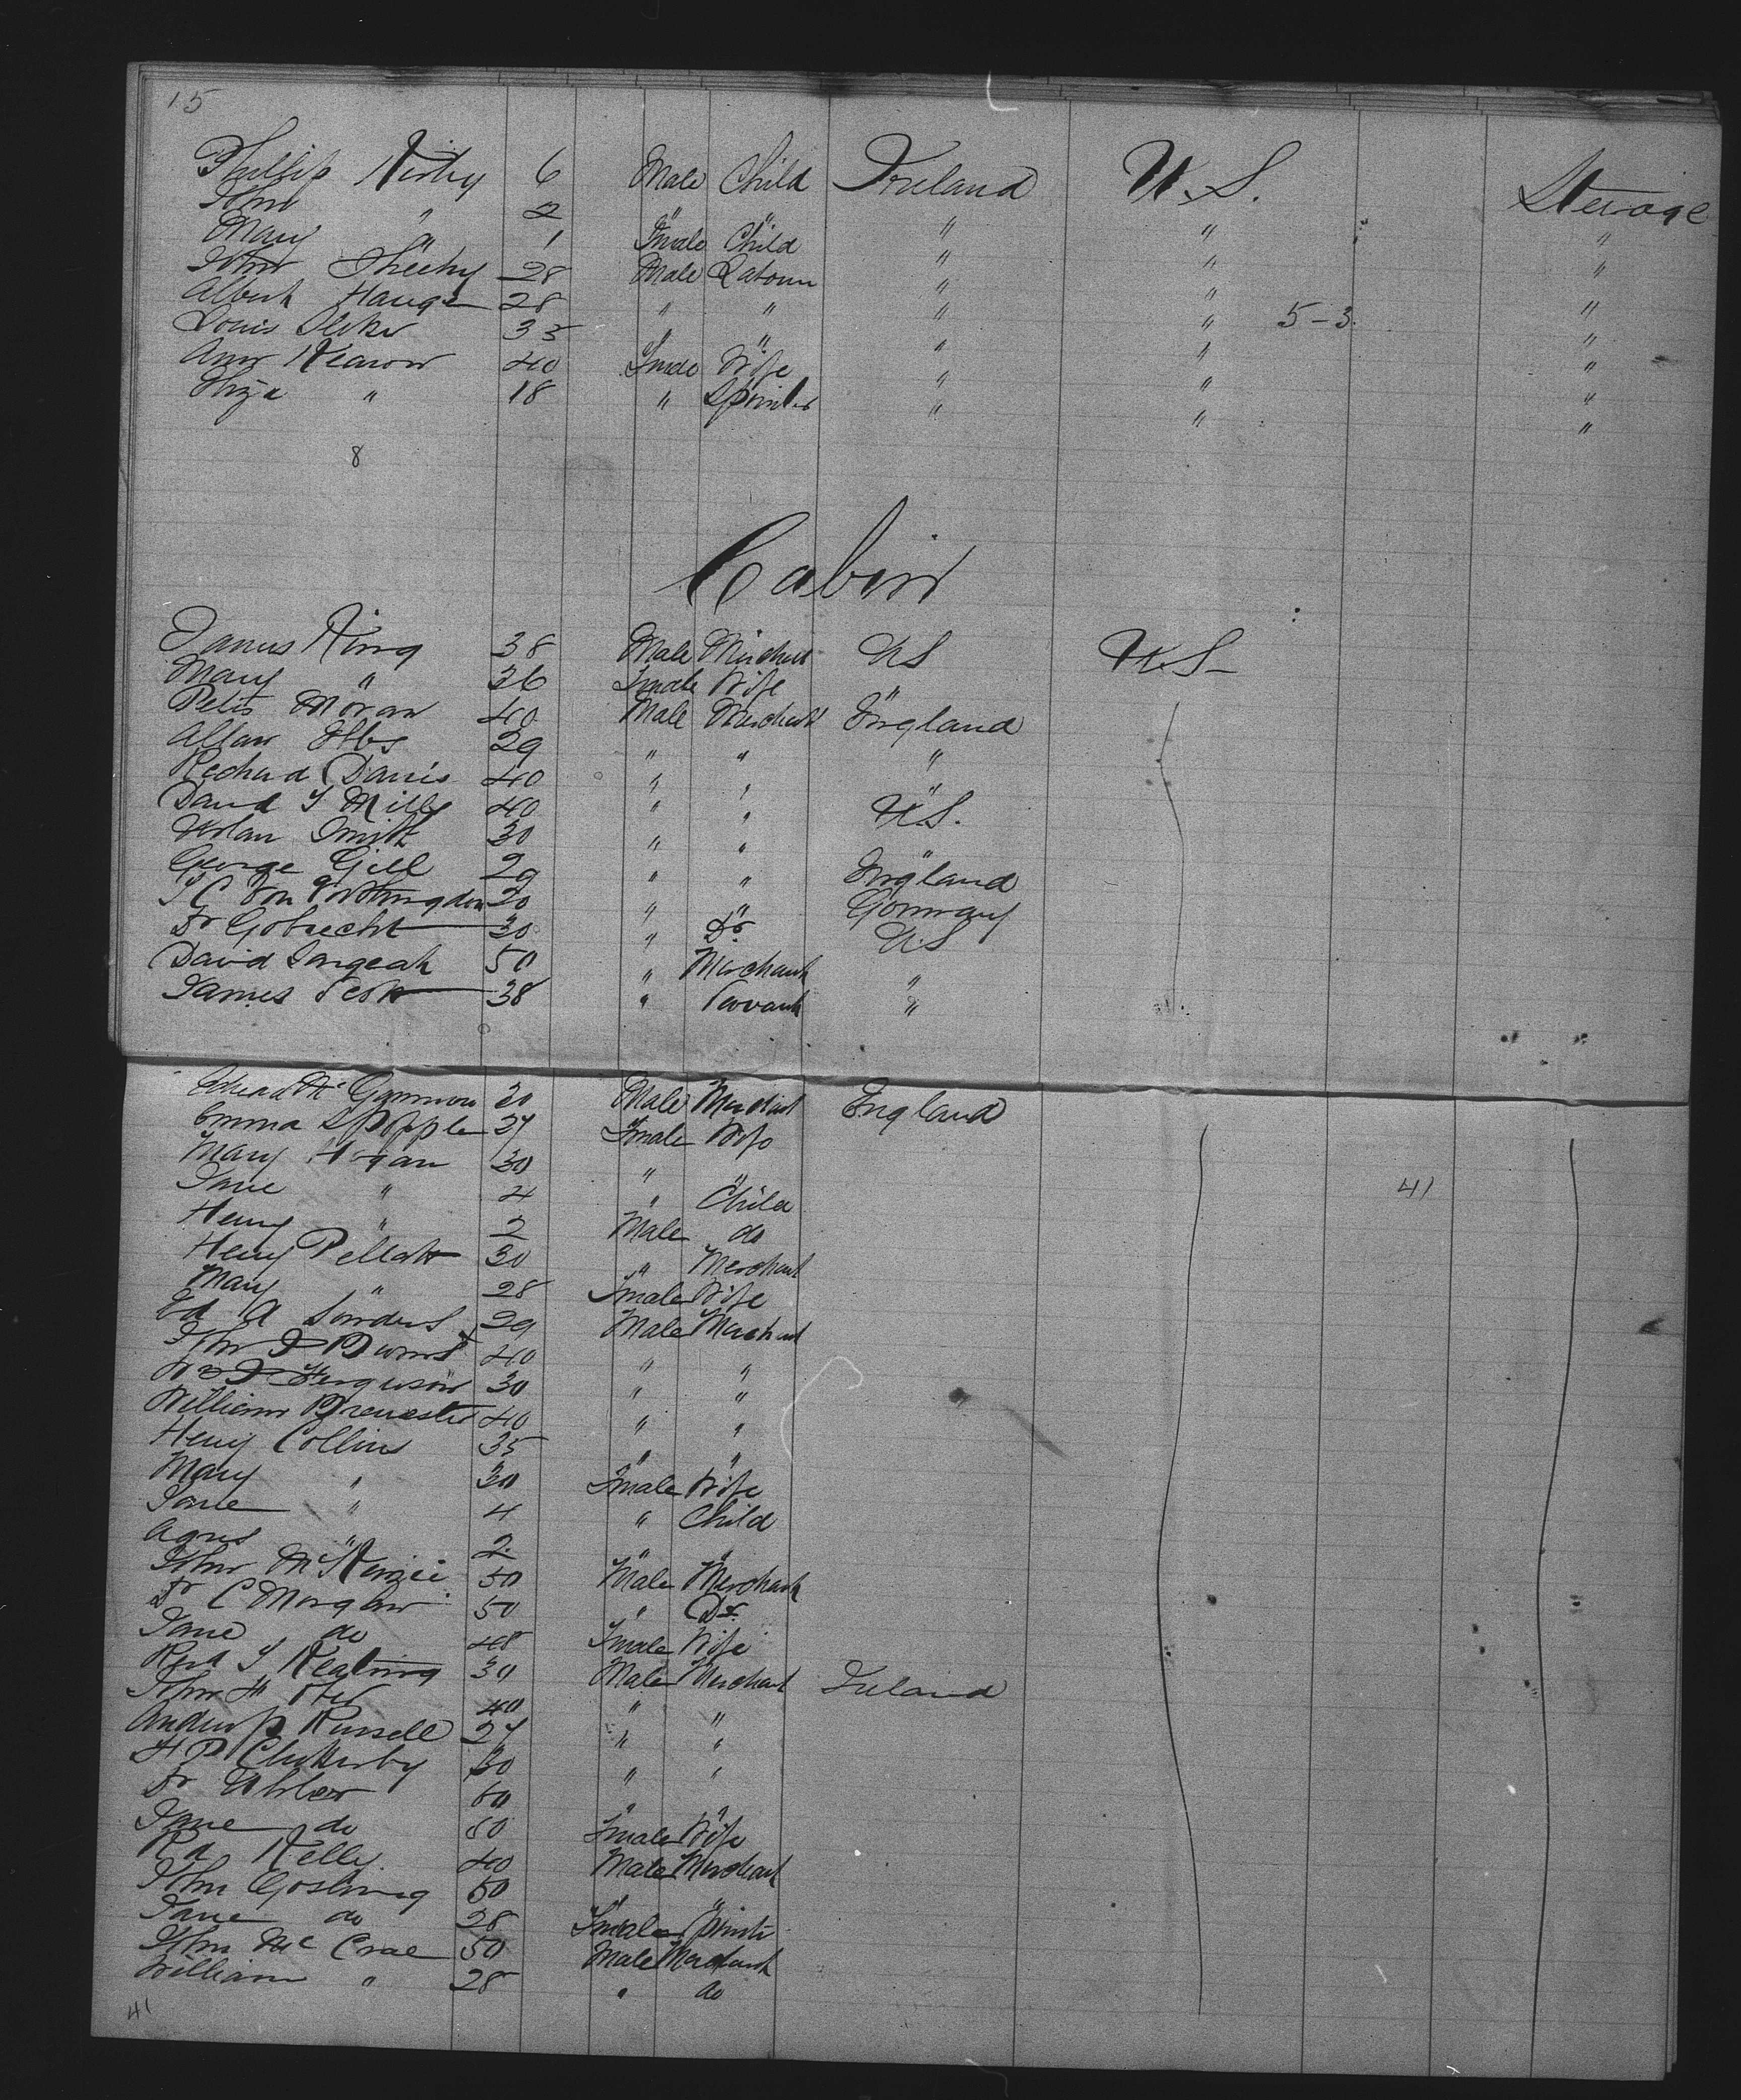 15
Phillip Kirby 6 Male Child Ireland U.S. Steerage
John " 2 " " " " "
Mary " 1 Female Child " " "
John Sheehy 28 Male Labourer " " "
Albert Hauge 28 " " " " 5-3 "
Louis 35 " " " " "
Ann Kearon 40 Female Wife " " "
Eliza " 18 " Spinster " " "
8
Cabin
James King 38 Male Merchant US U.S
Mary " 36 Female Wife "
Peter Moran 40 Male Merchant England
Allan Ebbs 29 " " "
Richard Davis 40 " " "
David S Mills 40 " " U.S.
Smith 30 " " "
George Gill 29 " " England
20 " " Germany
Dr Gobrecht 30 " Dr US
David Sargeant 50 " Merchant "
James 38 " Servant "
Mc Gammon 30 Male Merchant England
Emma 27 Female Wife
Mary Hogan 30 " "
Jane " 4 " Child
Henry " 2 Male do
41
Henry Pellatt 30 " Merchant
Mary " 28 Female Wife
Ed A Sanders 29 Male Merchant
John D 40 " "
Ferguson 30 " "
William Brewster 40 " "
Henry Collins 35 " "
Mary " 30 Female Wife
Jane " 4 " Child
Agnes " 2 " "
John McKenzie 50 Male Merchant
Dr C Morgan 50 " Dr
Jane do 48 Female Wife
S Keating 30 Male Merchant Ireland
John H 40 " "
Andrew P Russell 27 " "
H P 30 " "
Dr 60 " "
Jane do 50 Female Wife
Rd Kelly 40 Male Merchant
John Gosling 50 " "
Jane do 28 Female Spinster
John McCrae 50 Male Merchant
William " 28 " do
41